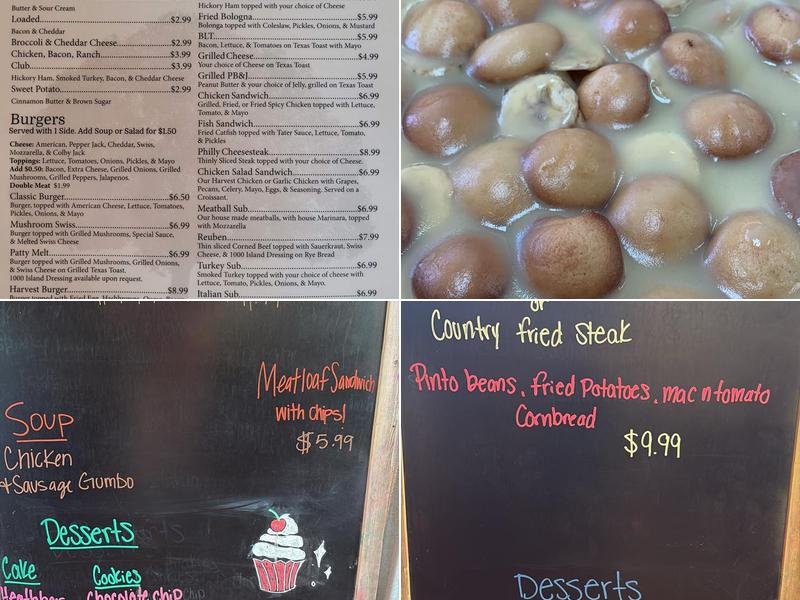 Butter & Sour Cream
Loaded...$2.99
Bacon & Cheddar
Broccoli & Cheddar Cheese...$2.99
Chicken, Bacon, Ranch...$3.99
Club...$3.99
Hickory Ham, Smoked Turkey, Bacon, & Cheddar Cheese
Sweet Potato...$2.99
Cinnamon Butter & Brown Sugar
Burgers
Served with 1 Side. Add Soup or Salad for $1.50
Cheese: American, Pepper Jack, Cheddar, Swiss,
Mozzarella, & Colby Jack
Toppings: Lettuce, Tomatoes, Onions, Pickles, & Mayo
Add $0.50: Bacon, Extra Cheese, Grilled Onions, Grilled
Mushrooms, Grilled Peppers, Jalapenos.
Double Meat $1.99
Classic Burger...$6.50
Burger, topped with American Cheese, Lettuce, Tomatoes,
Pickles, Onions, & Mayo
Mushroom Swiss...$6.99
Burger topped with Grilled Mushrooms, Special Sauce,
& Melted Swiss Cheese
Patty Melt...$6.99
Burger topped with Grilled Mushrooms, Grilled Onions,
& Swiss Cheese on Grilled Texas Toast.
1000 Island Dressing available upon request.
Harvest Burger...$8.99
Burger topped with Fried Egg, Hashbrowns,
Hickory Ham topped with your choice of Cheese
Fried Bologna...$5.99
Bolonga topped with Coleslaw, Pickles, Onions, & Mustard
BLT...$5.99
Bacon, Lettuce, & Tomatoes on Texas Toast with Mayo
Grilled Cheese...$4.99
Your choice of Cheese on Texas Toast
Grilled PB&J...$5.99
Peanut Butter & your choice of Jelly, grilled on Texas Toast
Chicken Sandwich...$6.99
Grilled, Fried, or Fried Spicy Chicken topped with Lettuce,
Tomato, & Mayo
Fish Sandwich...$6.99
Fried Catfish topped with Tater Sauce, Lettuce, Tomato,
& Pickles
Philly Cheesesteak...$8.99
Thinly Sliced Steak topped with your choice of Cheese.
Chicken Salad Sandwich...$6.99
Our Harvest Chicken or Garlic Chicken with Grapes,
Pecans, Celery, Mayo, Eggs, & Seasoning. Served on a
Croissant.
Meatball Sub...$6.99
Our house made meatballs, with house Marinara, topped
with Mozzarella
Reuben...$7.99
Thin sliced Corned Beef topped with Sauerkraut, Swiss
Cheese, & 1000 Island Dressing on Rye Bread
Turkey Sub...$6.99
Smoked Turkey topped with your choice of cheese with
Lettuce, Tomato, Pickles, Onions, & Mayo.
Italian Sub...$6.99
Meatloaf Sandwich
with chips!
$5.99
Soup
Chicken
+Sausage Gumbo
Desserts
Cake
Cookies
Heathbar
chocolate chip
or
Country fried steak
Pinto beans, fried Potatoes, mac n tomato
Cornbread
$9.99
Desserts